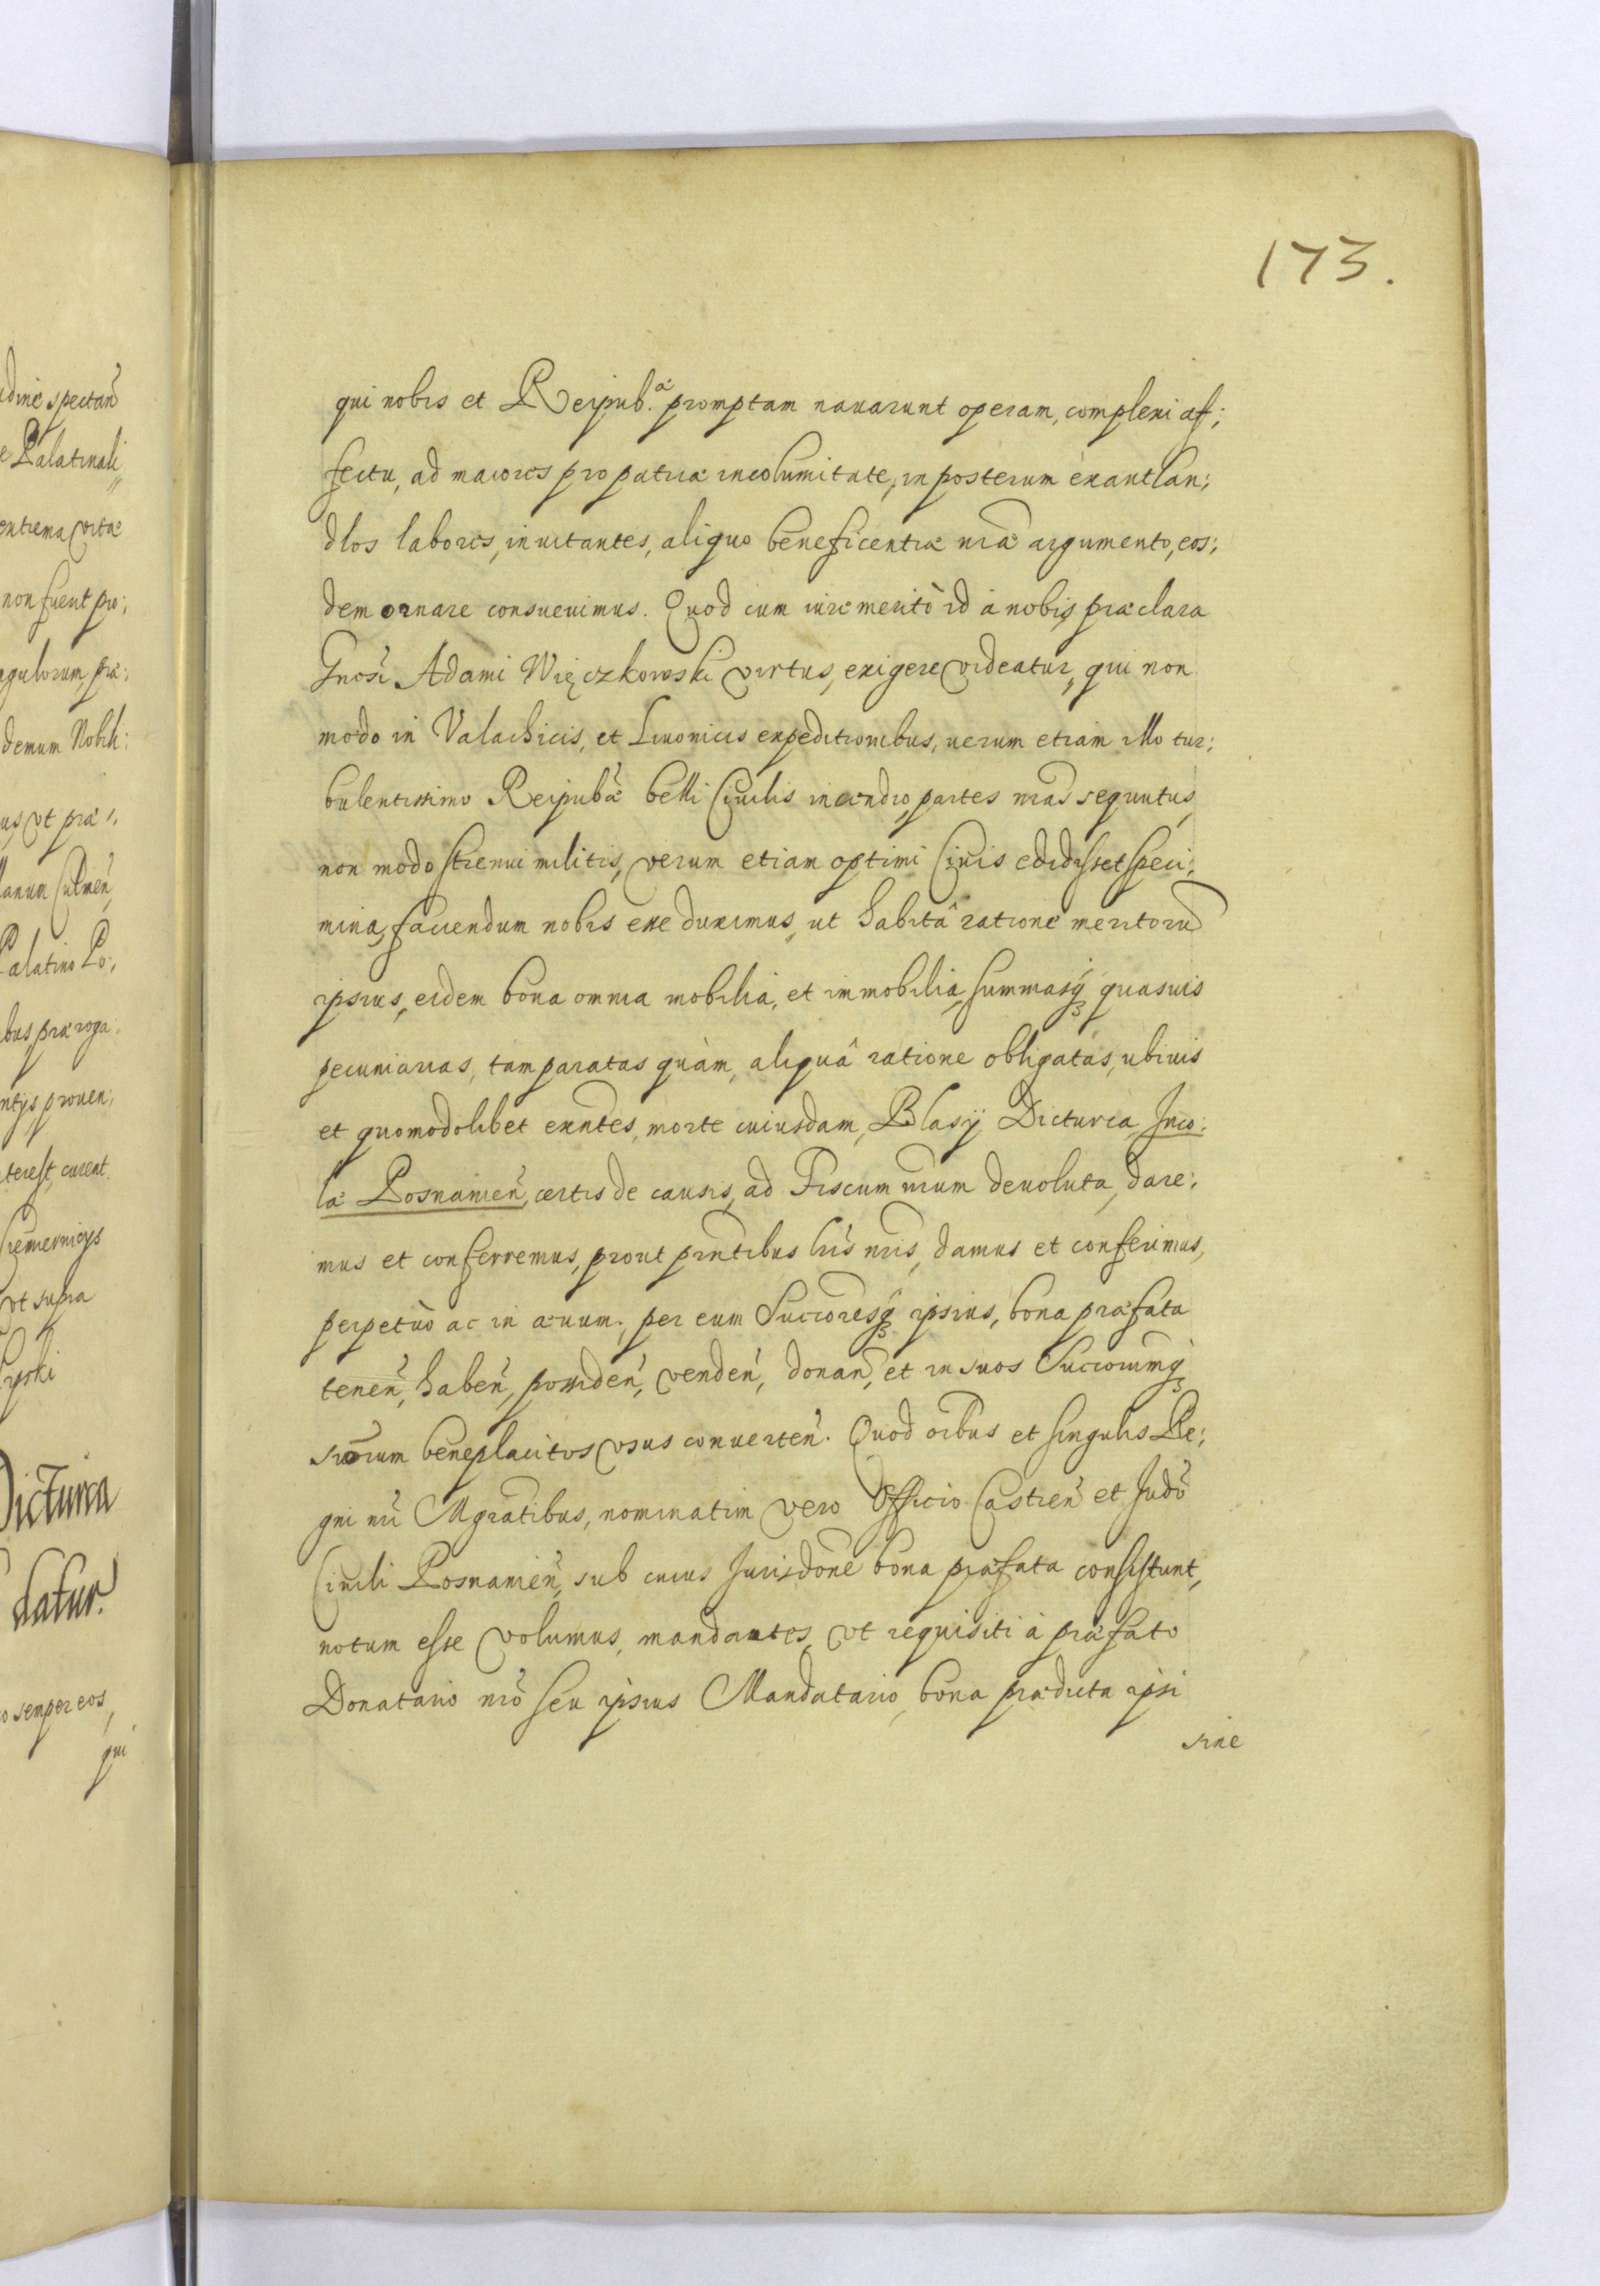 173.
udinē spectan̄
e Palatinali
extrema vitæ
non fuerit pro;
ngulorum, præ;
demum Nobili:
us, vt præ s.
Culmen̄
Palatino Po;
bus, præ roga:
ntijs prouen;
terest, curent.
vt supra
Dicturica
datur.
o semper eos,
qui
qui nobis et Reipub.æ promptam nauarunt operam, complexi af;
fectu, ad maiores pro patriæ incolumitate, in posterum exantlan;
dlos labores, inuitantes, aliquo beneficentiæ nræ argumento, eos;
dem ornare consueuimus. Quod cum iure meritò id à nobis, præclara
Gnosi Adami Więczkowski virtus, exigere videatur, qui non
modo in Valachicis, et Liuonicis expeditionibus, uerum etiam illo tur;
bulentissimo Reipubæ belli Ciuilis incendio, partes nras sequutus,
non modo strenui militis, verum etiam optimi Ciuis edidisset speci;
mina, faciendum nobis exe duximus, ut habitâ ratione meritorū
ipsius, eidem bona omnia mobilia, et immobilia, summasq̃ quasuis
pecuniarias, tam paratas quàm, aliquâ ratione obligatas, ubiuis
et quomodolibet exntes, morte cuiusdam, Blasij Dicturica, Inco:
læ Posnanien̄, certis de causis, ad Fiscum nrum deuoluta, dare;
mus et conferremus, prout prntibus lris nris, damus et conferimus,
perpetuò ac in æuum; per eum Succoresq̃ ipsius, bona præfata
tenen̄, haben̄, possiden̄, venden̄, donan̄, et in suos Succorumq̃
suorum beneplacitos vsus conuerten̄. Quod oibus et singulis Re;
gni nri Mgratibus, nominatim vero Officio Castren̄ et Judō
Ciuili Posnanien̄, sub cuius Jurisdone bona præfata consistunt,
notum esse volumus, mandantes, vt requisiti à præfato
Donatario nrō seu ipsius Mandatario, bona prædicta ipsi
sine